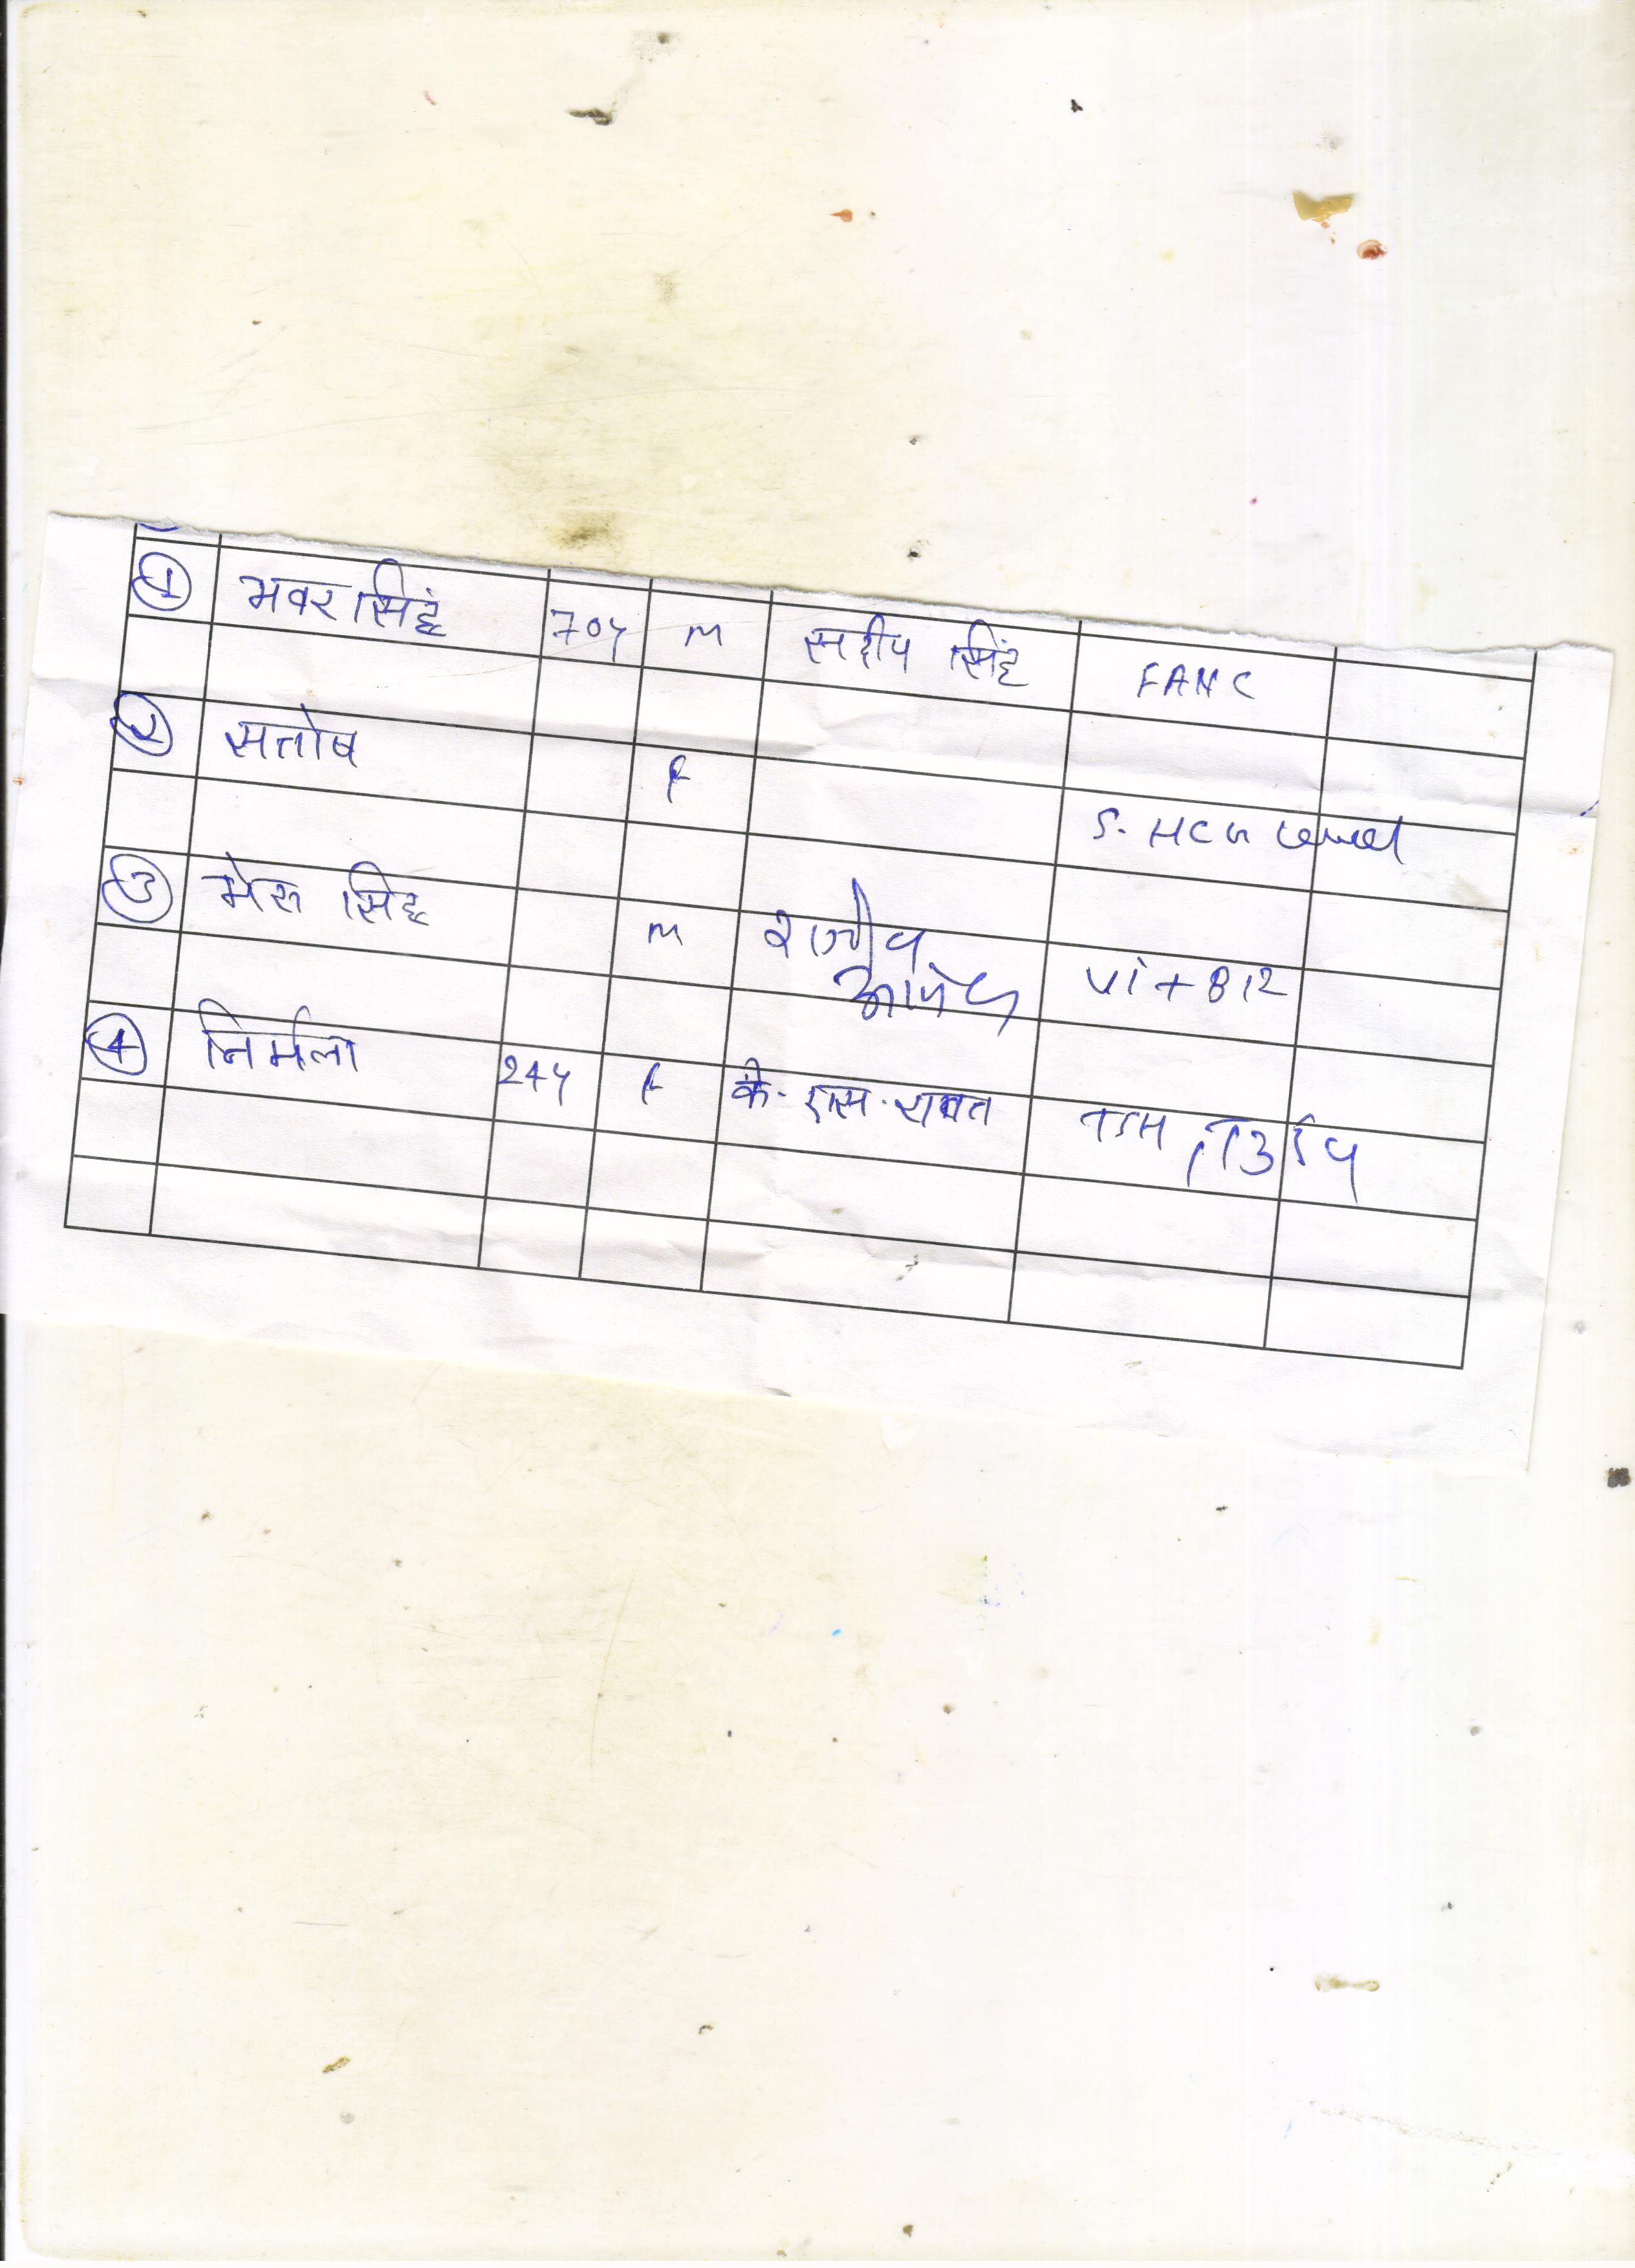 1 भवर सिहं 70y M सदीप सिंह FANC
2 सतोष F S. HCG Level
3 भेरू सिह M राजीव Vit B12
4 निर्मला 24y F के. एस. रावत TSH, T3